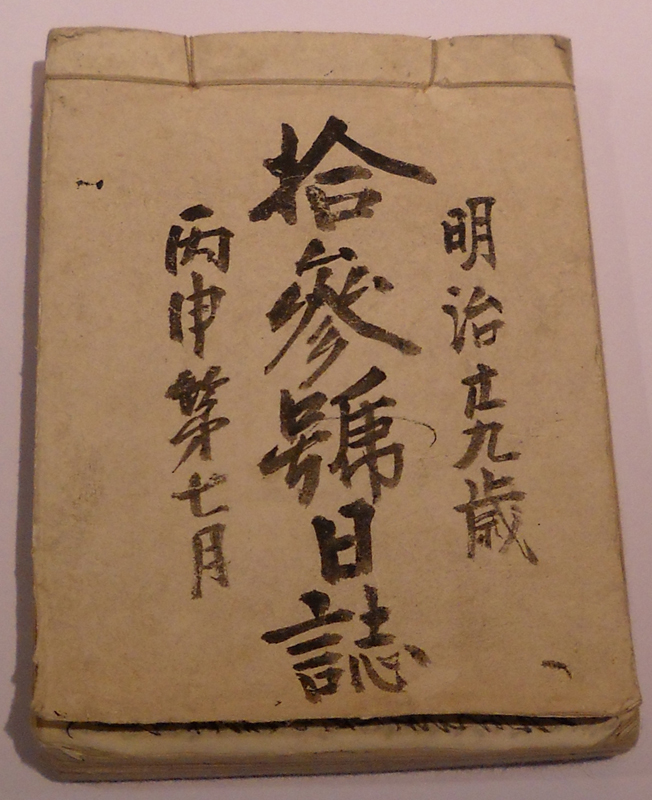 明治廿九歳
拾參號日誌
丙申第七月